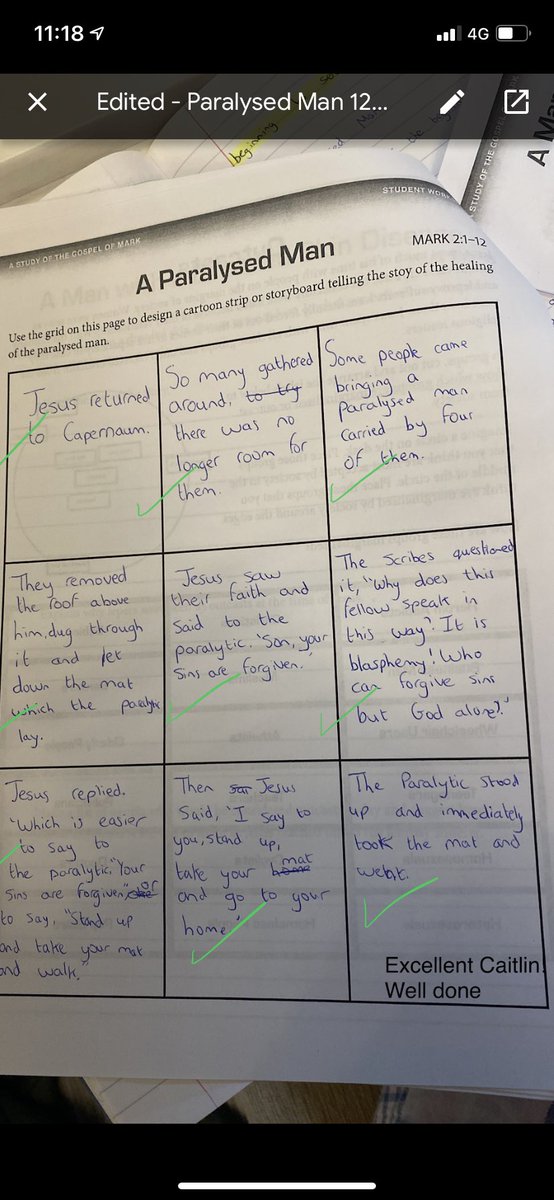 11:18
4G
Edited - Paralysed Man 12...
beginning
STUDY OF THE GOSPEL
A STUDY OF THE GOSPEL OF MARK
STUDENT
A Paralysed Man
MARK 2:1–12
Use the grid on this page to design a cartoon strip or storyboard telling the stoy of the healing
of the paralysed man.
Jesus returned
to Capernaum.
So many gathered
around, to try
there was no
longer room for
them.
Some people came
bringing a
paralysed man
carried by four
of them.
They removed
the roof above
him, dug through
it and let
down the mat
which the paralytic
lay.
Jesus saw
their faith and
said to the
paralytic. 'Son, your
Sins are forgiven.'
The Scribes questioned
it, "Why does this
fellow speak in
this way? It is
blasphemy! Who
can forgive sins
but God alone?.'
Jesus replied.
"Which is easier
to say to
the paralytic, "Your
Sins are forgiven," or
to say, "Stand up
and take your mat
and walk."
Then Jesus
Said, 'I say to
you, stand up,
take your home mat
and go to your
home.'
The Paralytic stood
up and immediately
took the mat and
went.
Excellent Caitlin
Well done